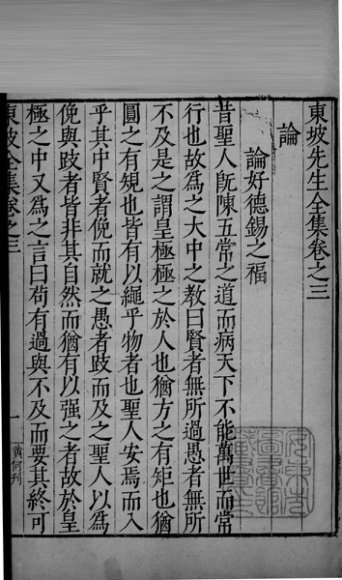 東坡先生全集卷之三
論
論好德錫之福
昔聖人旣陳五常之道而病天下不能萬世而常
行也故爲之大中之教曰賢者無所過愚者無所
不及是之謂皇極極之於人也猶方之有矩也猶
圓之有規也皆有以繩乎物者也聖人安焉而入
乎其中賢者俛而就之愚者跂而及之聖人以爲
俛與跂者皆非其自然而猶有以强之者故於皇
極之中又爲之言曰苟有過與不及而要其終可
東坡全集卷之三
一